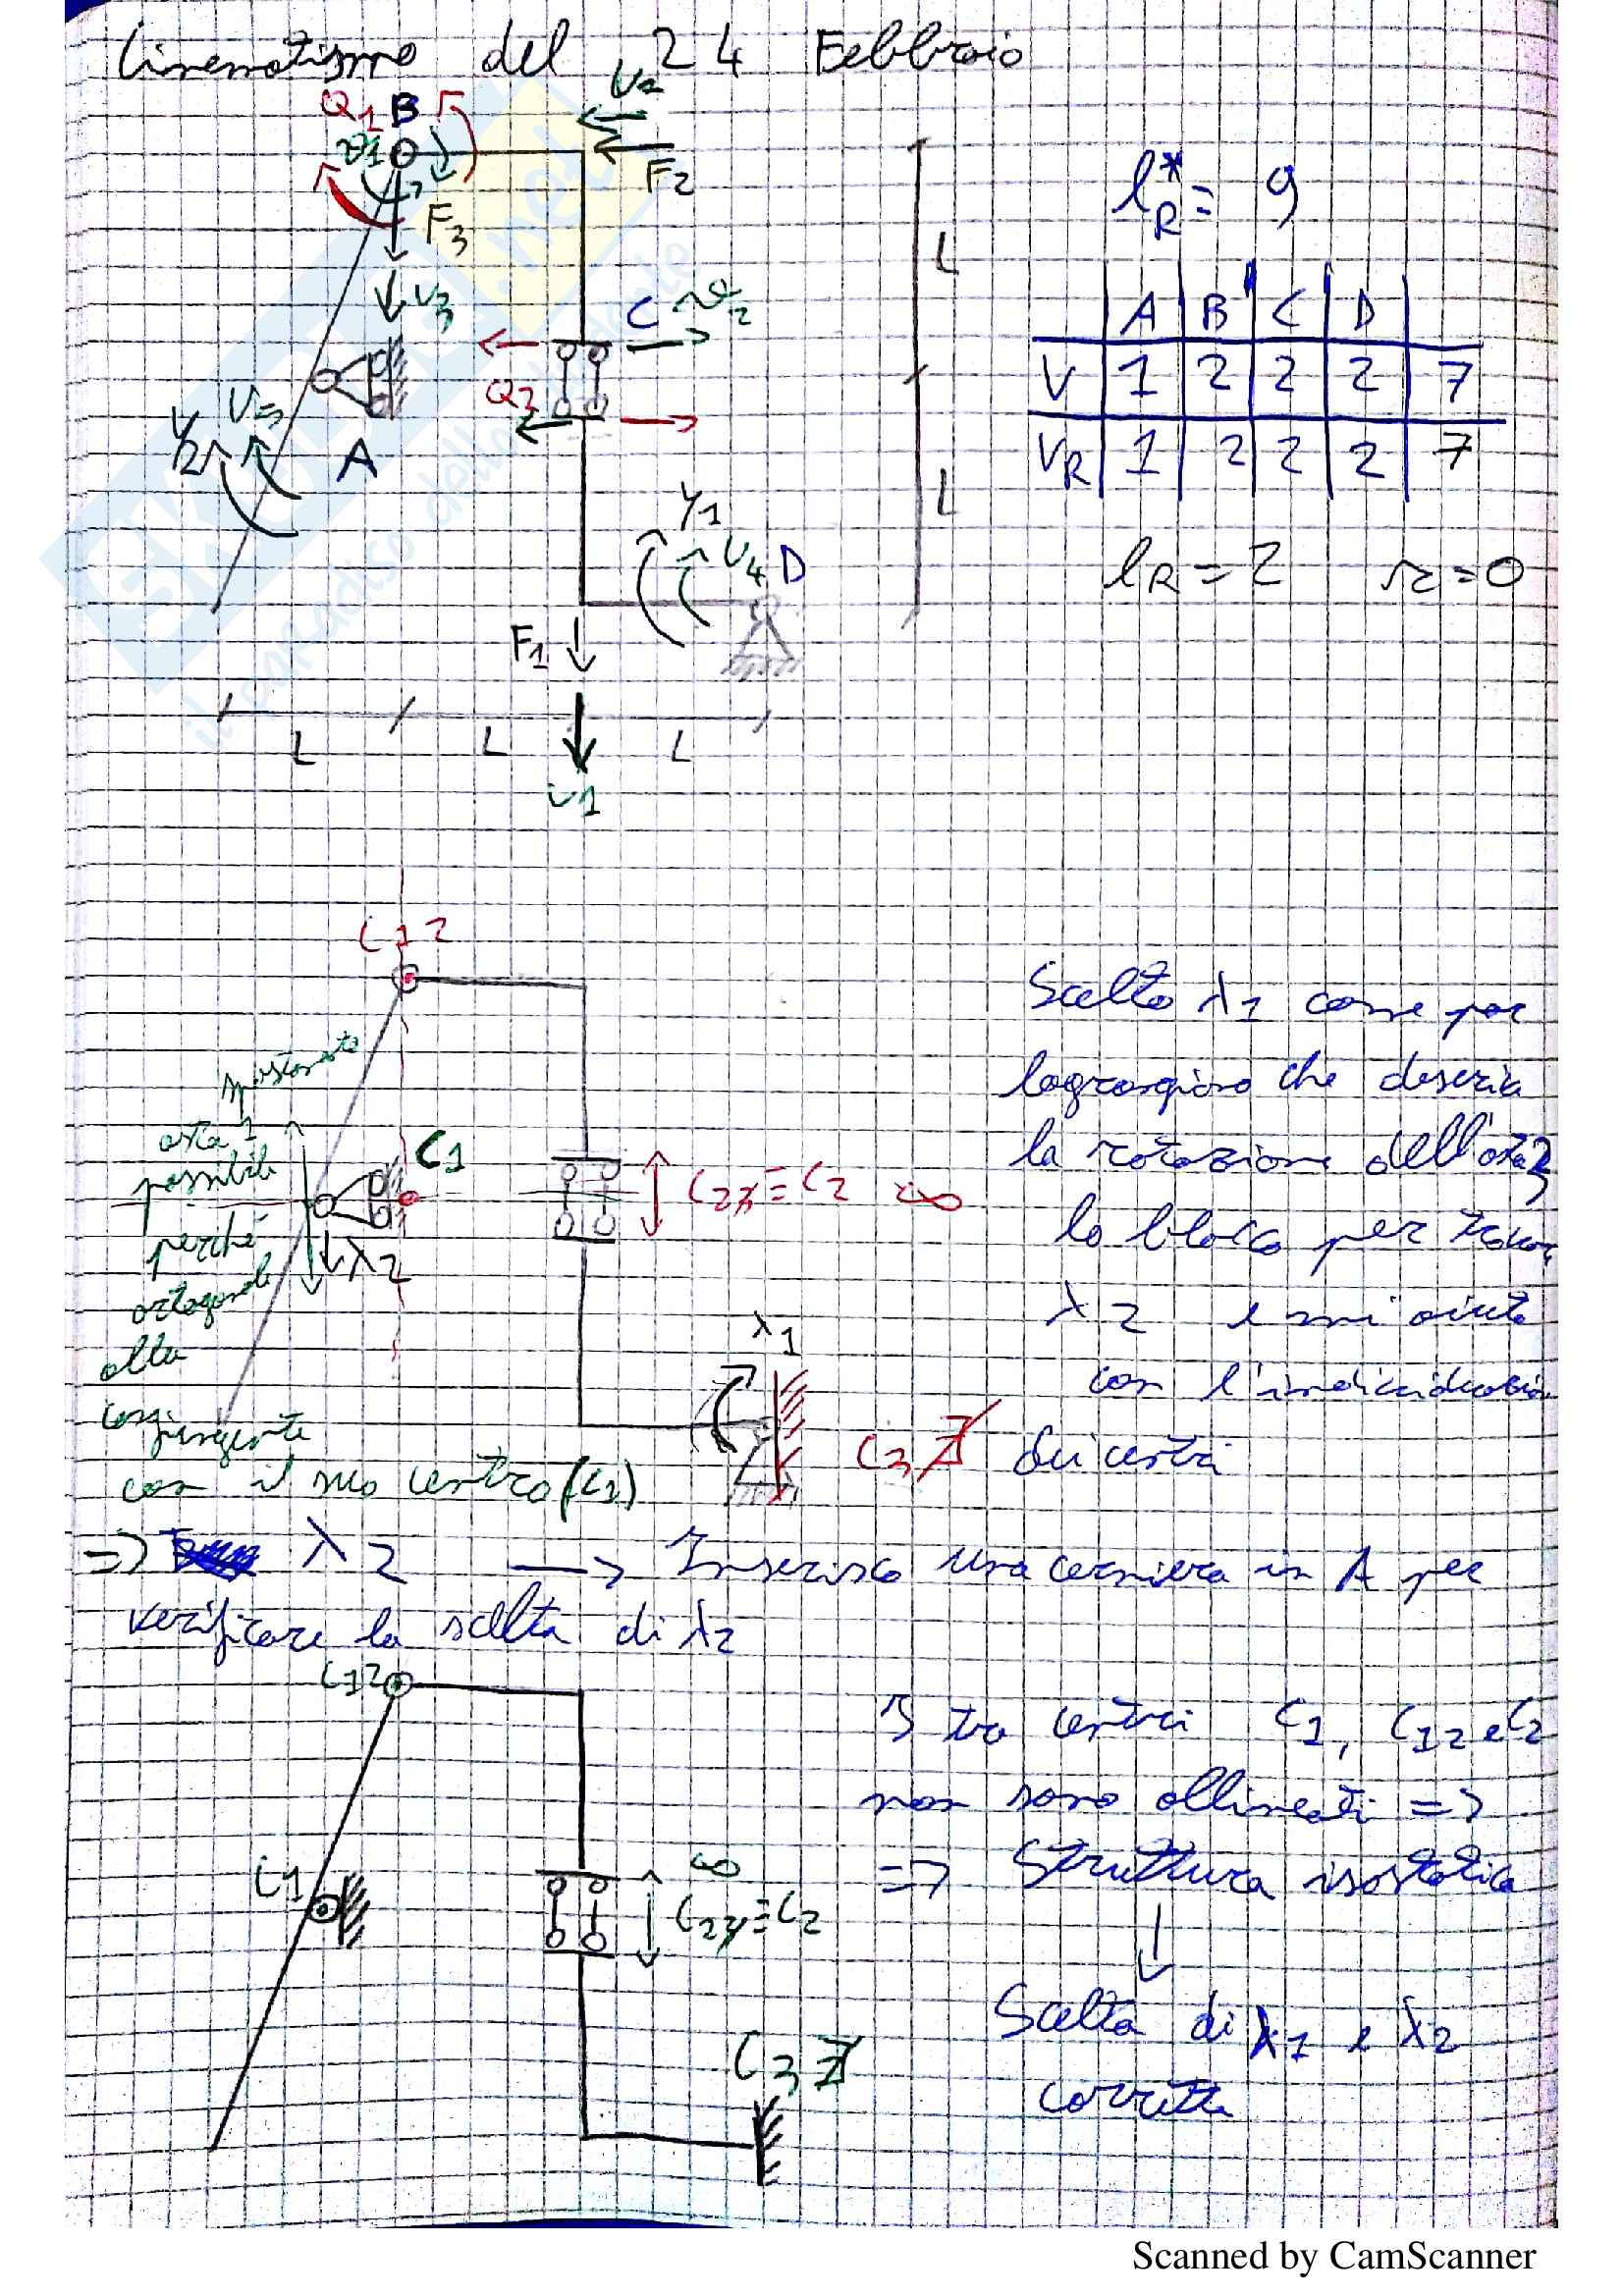 Cinematismo del 24 Febbraio
Q1 B
U2
ϑ1
F2
F3
U3
C
ϑ2
Q2
A
Y2
U5
Y1
U4 D
F1
U1
L L L
L
L
l*R = 9
A B C D
V 1 2 2 2 7
VR 1 2 2 2 7
lR = 2 r = 0
C12
spostamento
asta 1
possibile
perché
ortogonale
alla
congiungente
con il suo centro (C1)
C1
λ2
C23 ≡ C2 ∞
λ1
C3
Scelto λ1 come par
lagrangiano che descrive
la rotazione dell'asta 3
lo blocco per trovare
λ2 e mi aiuto
con l'individuazione
dei centri
=> λ2 → Inserisco una cerniera in A per
verificare la scelta di λ2
C12
C1
∞
C23 ≡ C2
C3
I tre centri C1, C12 e C2
non sono allineati =>
=> Struttura isostatica
Scelta di λ1 e λ2
corretta
Scanned by CamScanner